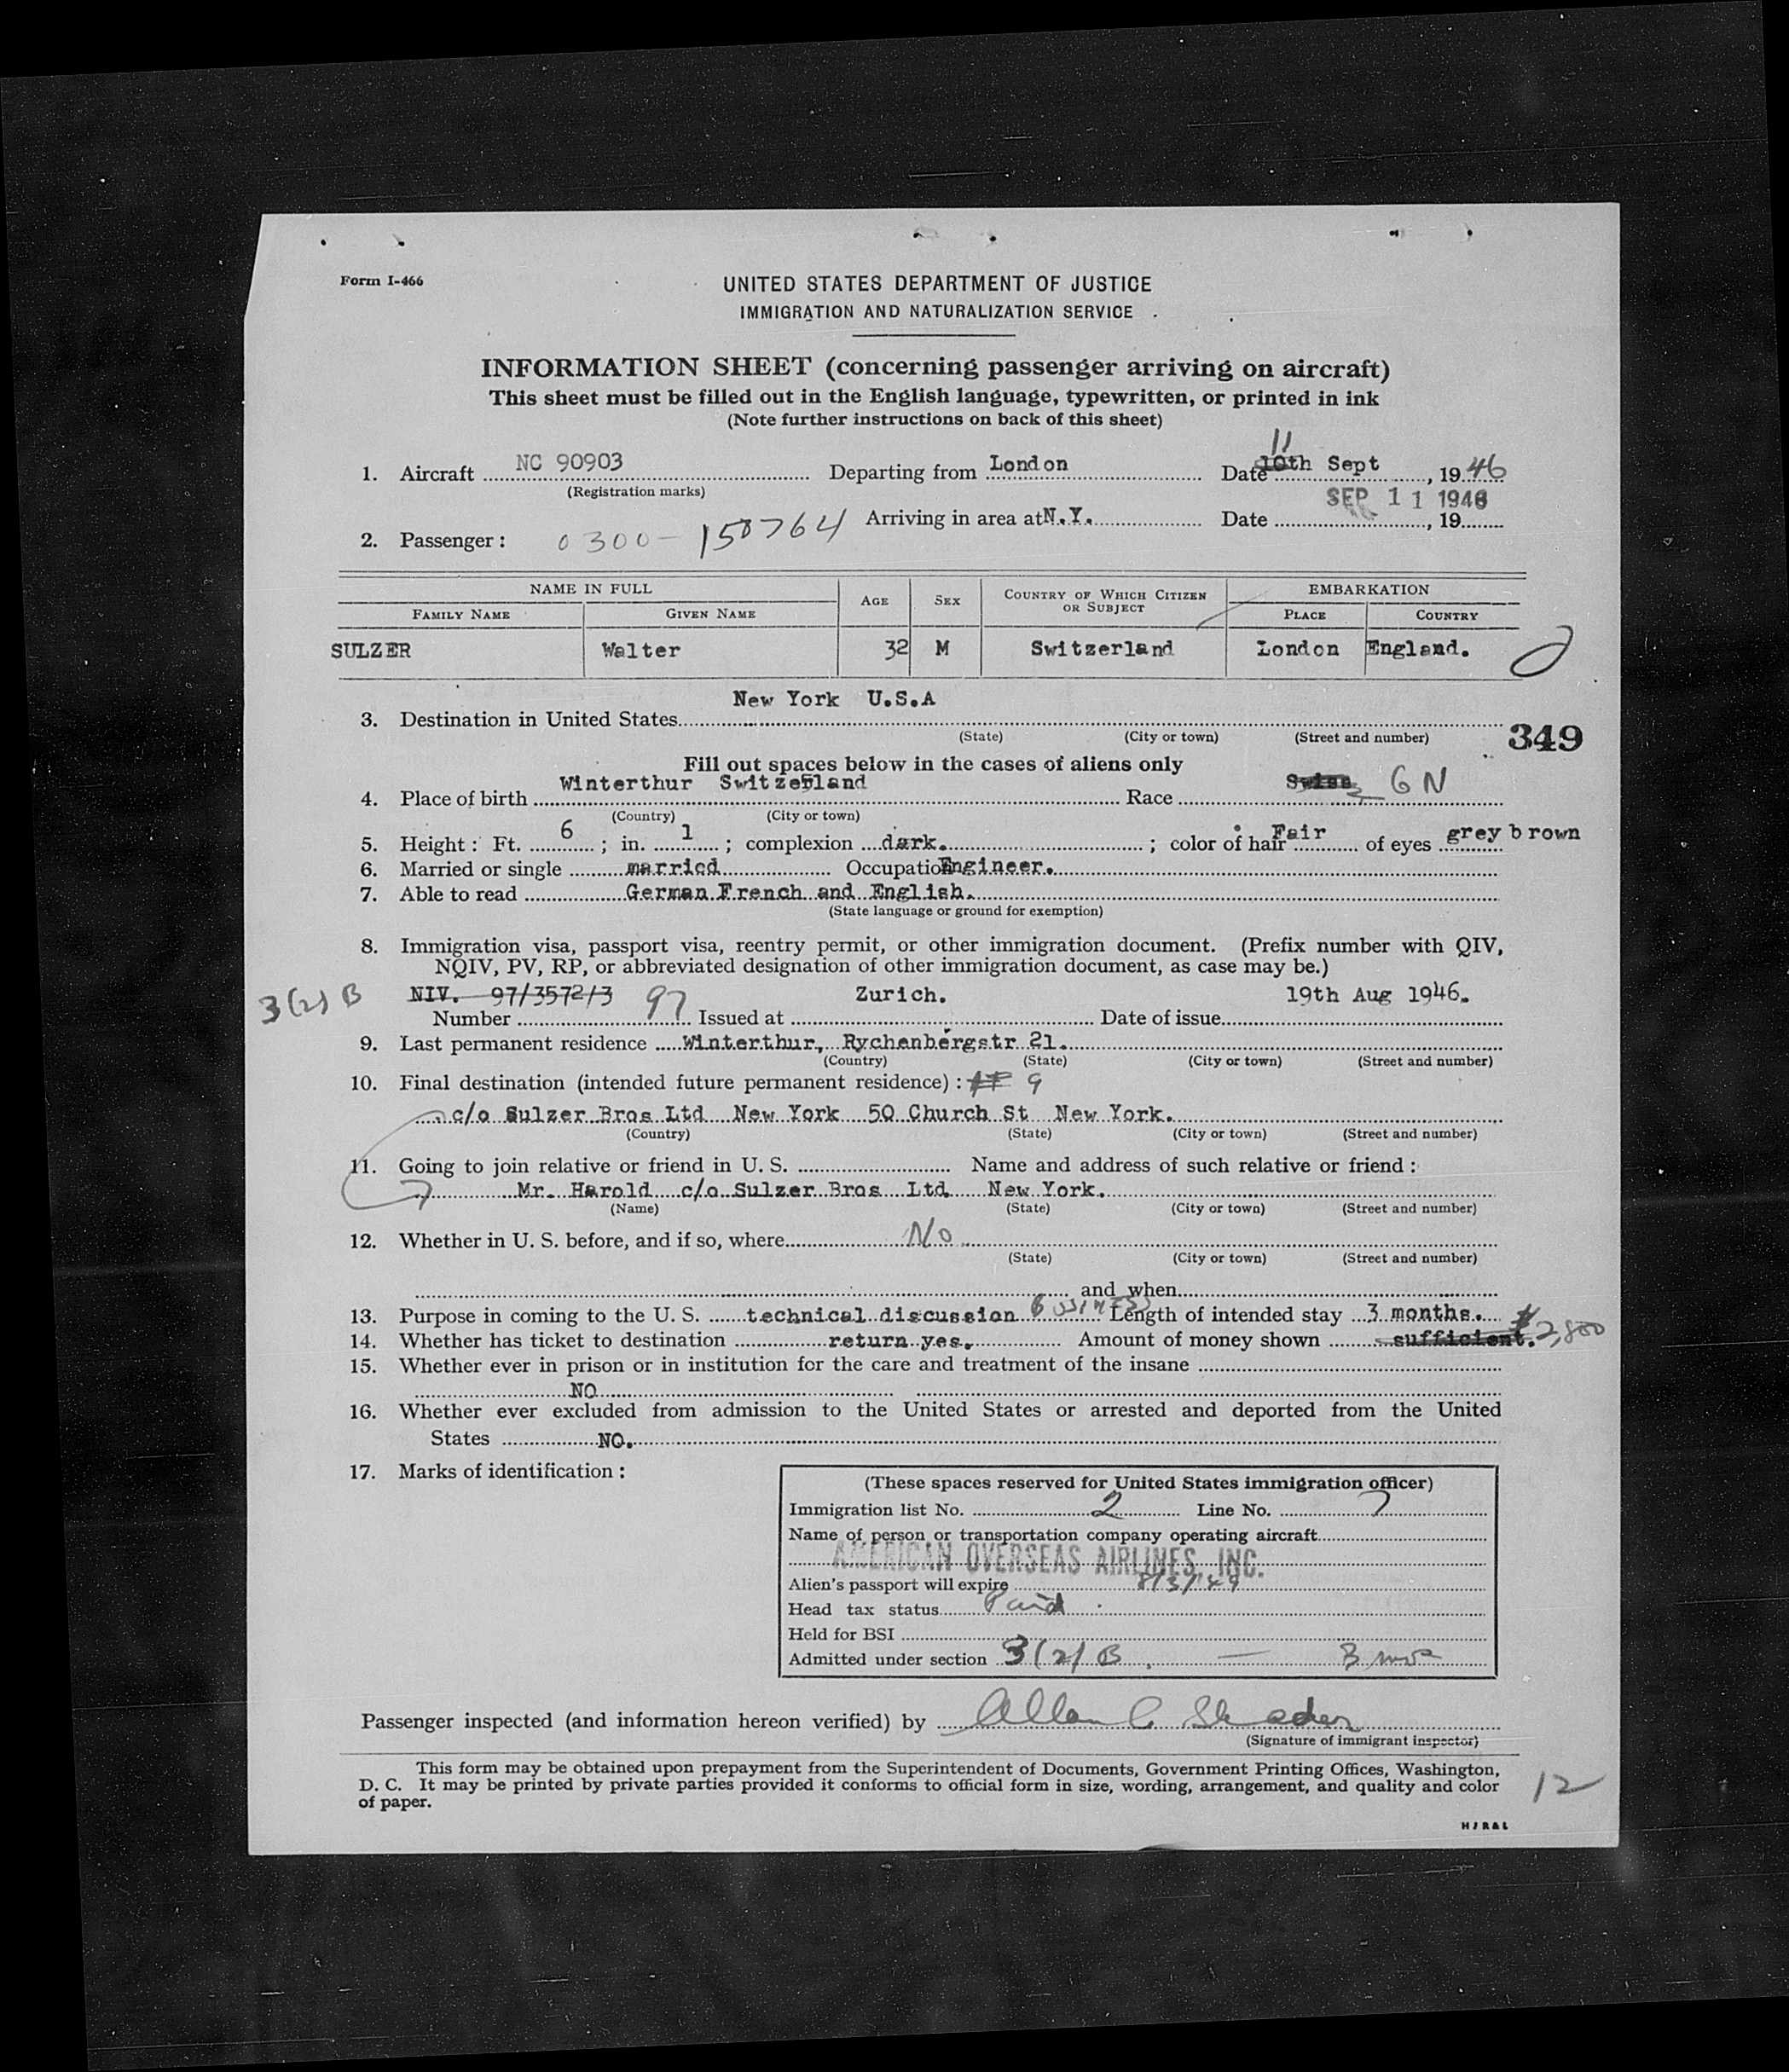 Form I-466
UNITED STATES DEPARTMENT OF JUSTICE
IMMIGRATION AND NATURALIZATION SERVICE
INFORMATION SHEET (concerning passenger arriving on aircraft)
This sheet must be filled out in the English language, typewritten, or printed in ink
(Note further instructions on back of this sheet)
11
1. Aircraft NC 90903 Departing from London Date 10th Sept, 1946
(Registration marks) SEP 11 1946
Arriving in area at N.Y. Date , 19
2. Passenger: 0300-150764
NAME IN FULL AGE SEX COUNTRY OF WHICH CITIZEN OR SUBJECT EMBARKATION
FAMILY NAME GIVEN NAME PLACE COUNTRY
SULZER Walter 32 M Switzerland London England.
New York U.S.A
3. Destination in United States
(State) (City or town) (Street and number) 349
Fill out spaces below in the cases of aliens only
4. Place of birth Winterthur Switzerland Race Swiss GN
(Country) (City or town)
5. Height: Ft. 6; in. 1; complexion dark.; color of hair Fair of eyes grey brown
6. Married or single married Occupation Engineer.
7. Able to read German French and English.
(State language or ground for exemption)
8. Immigration visa, passport visa, reentry permit, or other immigration document. (Prefix number with QIV,
NQIV, PV, RP, or abbreviated designation of other immigration document, as case may be.)
3(2)B NIV. 97/3572/3 97 Zurich. 19th Aug 1946.
Number Issued at Date of issue
9. Last permanent residence Winterthur, Rychenbergstr 21.
(Country) (State) (City or town) (Street and number)
10. Final destination (intended future permanent residence): 9
c/o Sulzer Bros Ltd New York 50 Church St New York.
(Country) (State) (City or town) (Street and number)
11. Going to join relative or friend in U. S. Name and address of such relative or friend:
Mr. Harold c/o Sulzer Bros Ltd New York.
(Name) (State) (City or town) (Street and number)
12. Whether in U. S. before, and if so, where No
(State) (City or town) (Street and number)
and when
13. Purpose in coming to the U. S. technical discussion Business Length of intended stay 3 months.
14. Whether has ticket to destination return yes. Amount of money shown sufficient. $2,800
15. Whether ever in prison or in institution for the care and treatment of the insane
NO
16. Whether ever excluded from admission to the United States or arrested and deported from the United
States NO.
17. Marks of identification:
(These spaces reserved for United States immigration officer)
Immigration list No. 2 Line No. 7
Name of person or transportation company operating aircraft
AMERICAN OVERSEAS AIRLINES, INC.
Alien's passport will expire 8/3/49
Head tax status Paid
Held for BSI
Admitted under section 3(2)B. — 3 mos
Passenger inspected (and information hereon verified) by Allan C Shader
(Signature of immigrant inspector)
This form may be obtained upon prepayment from the Superintendent of Documents, Government Printing Offices, Washington,
D. C. It may be printed by private parties provided it conforms to official form in size, wording, arrangement, and quality and color
of paper.
12
HJR&L